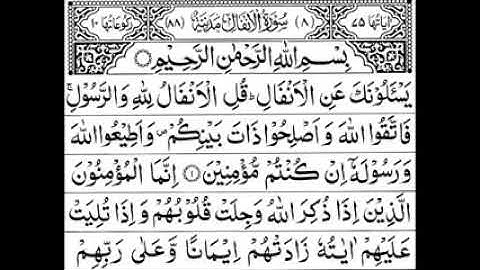 اٰیَاتُهَا ۷۵ (۸) سُوْرَةُ الْاَنْفَالِ مَدَنِیَّةٌ (۸۸) رُكُوْعَاتُهَا ۱۰
بِسْمِ اللّٰهِ الرَّحْمٰنِ الرَّحِیْمِ
یَسْـَٔلُوْنَكَ عَنِ الْاَنْفَالِ ؕ قُلِ الْاَنْفَالُ لِلّٰهِ وَالرَّسُوْلِ ۚ
فَاتَّقُوا اللّٰهَ وَاَصْلِحُوْا ذَاتَ بَیْنِكُمْ ۪ وَاَطِیْعُوا اللّٰهَ
وَرَسُوْلَهٗۤ اِنْ كُنْتُمْ مُّؤْمِنِیْنَ ۱ اِنَّمَا الْمُؤْمِنُوْنَ
الَّذِیْنَ اِذَا ذُكِرَ اللّٰهُ وَجِلَتْ قُلُوْبُهُمْ وَاِذَا تُلِیَتْ
عَلَیْهِمْ اٰیٰتُهٗ زَادَتْهُمْ اِیْمَانًا وَّعَلٰی رَبِّهِمْ